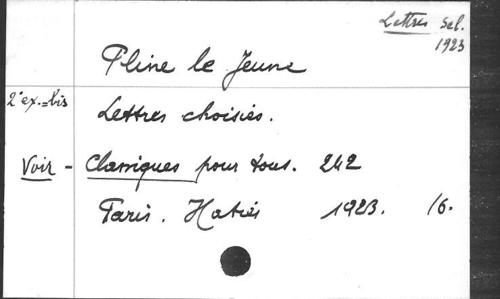 Lettres Sel.
1923
Pline le Jeune
2e ex.=bis
Lettres choisies.
Voir - Classiques pour tous. 242
Paris. Hatier 1923. 16.